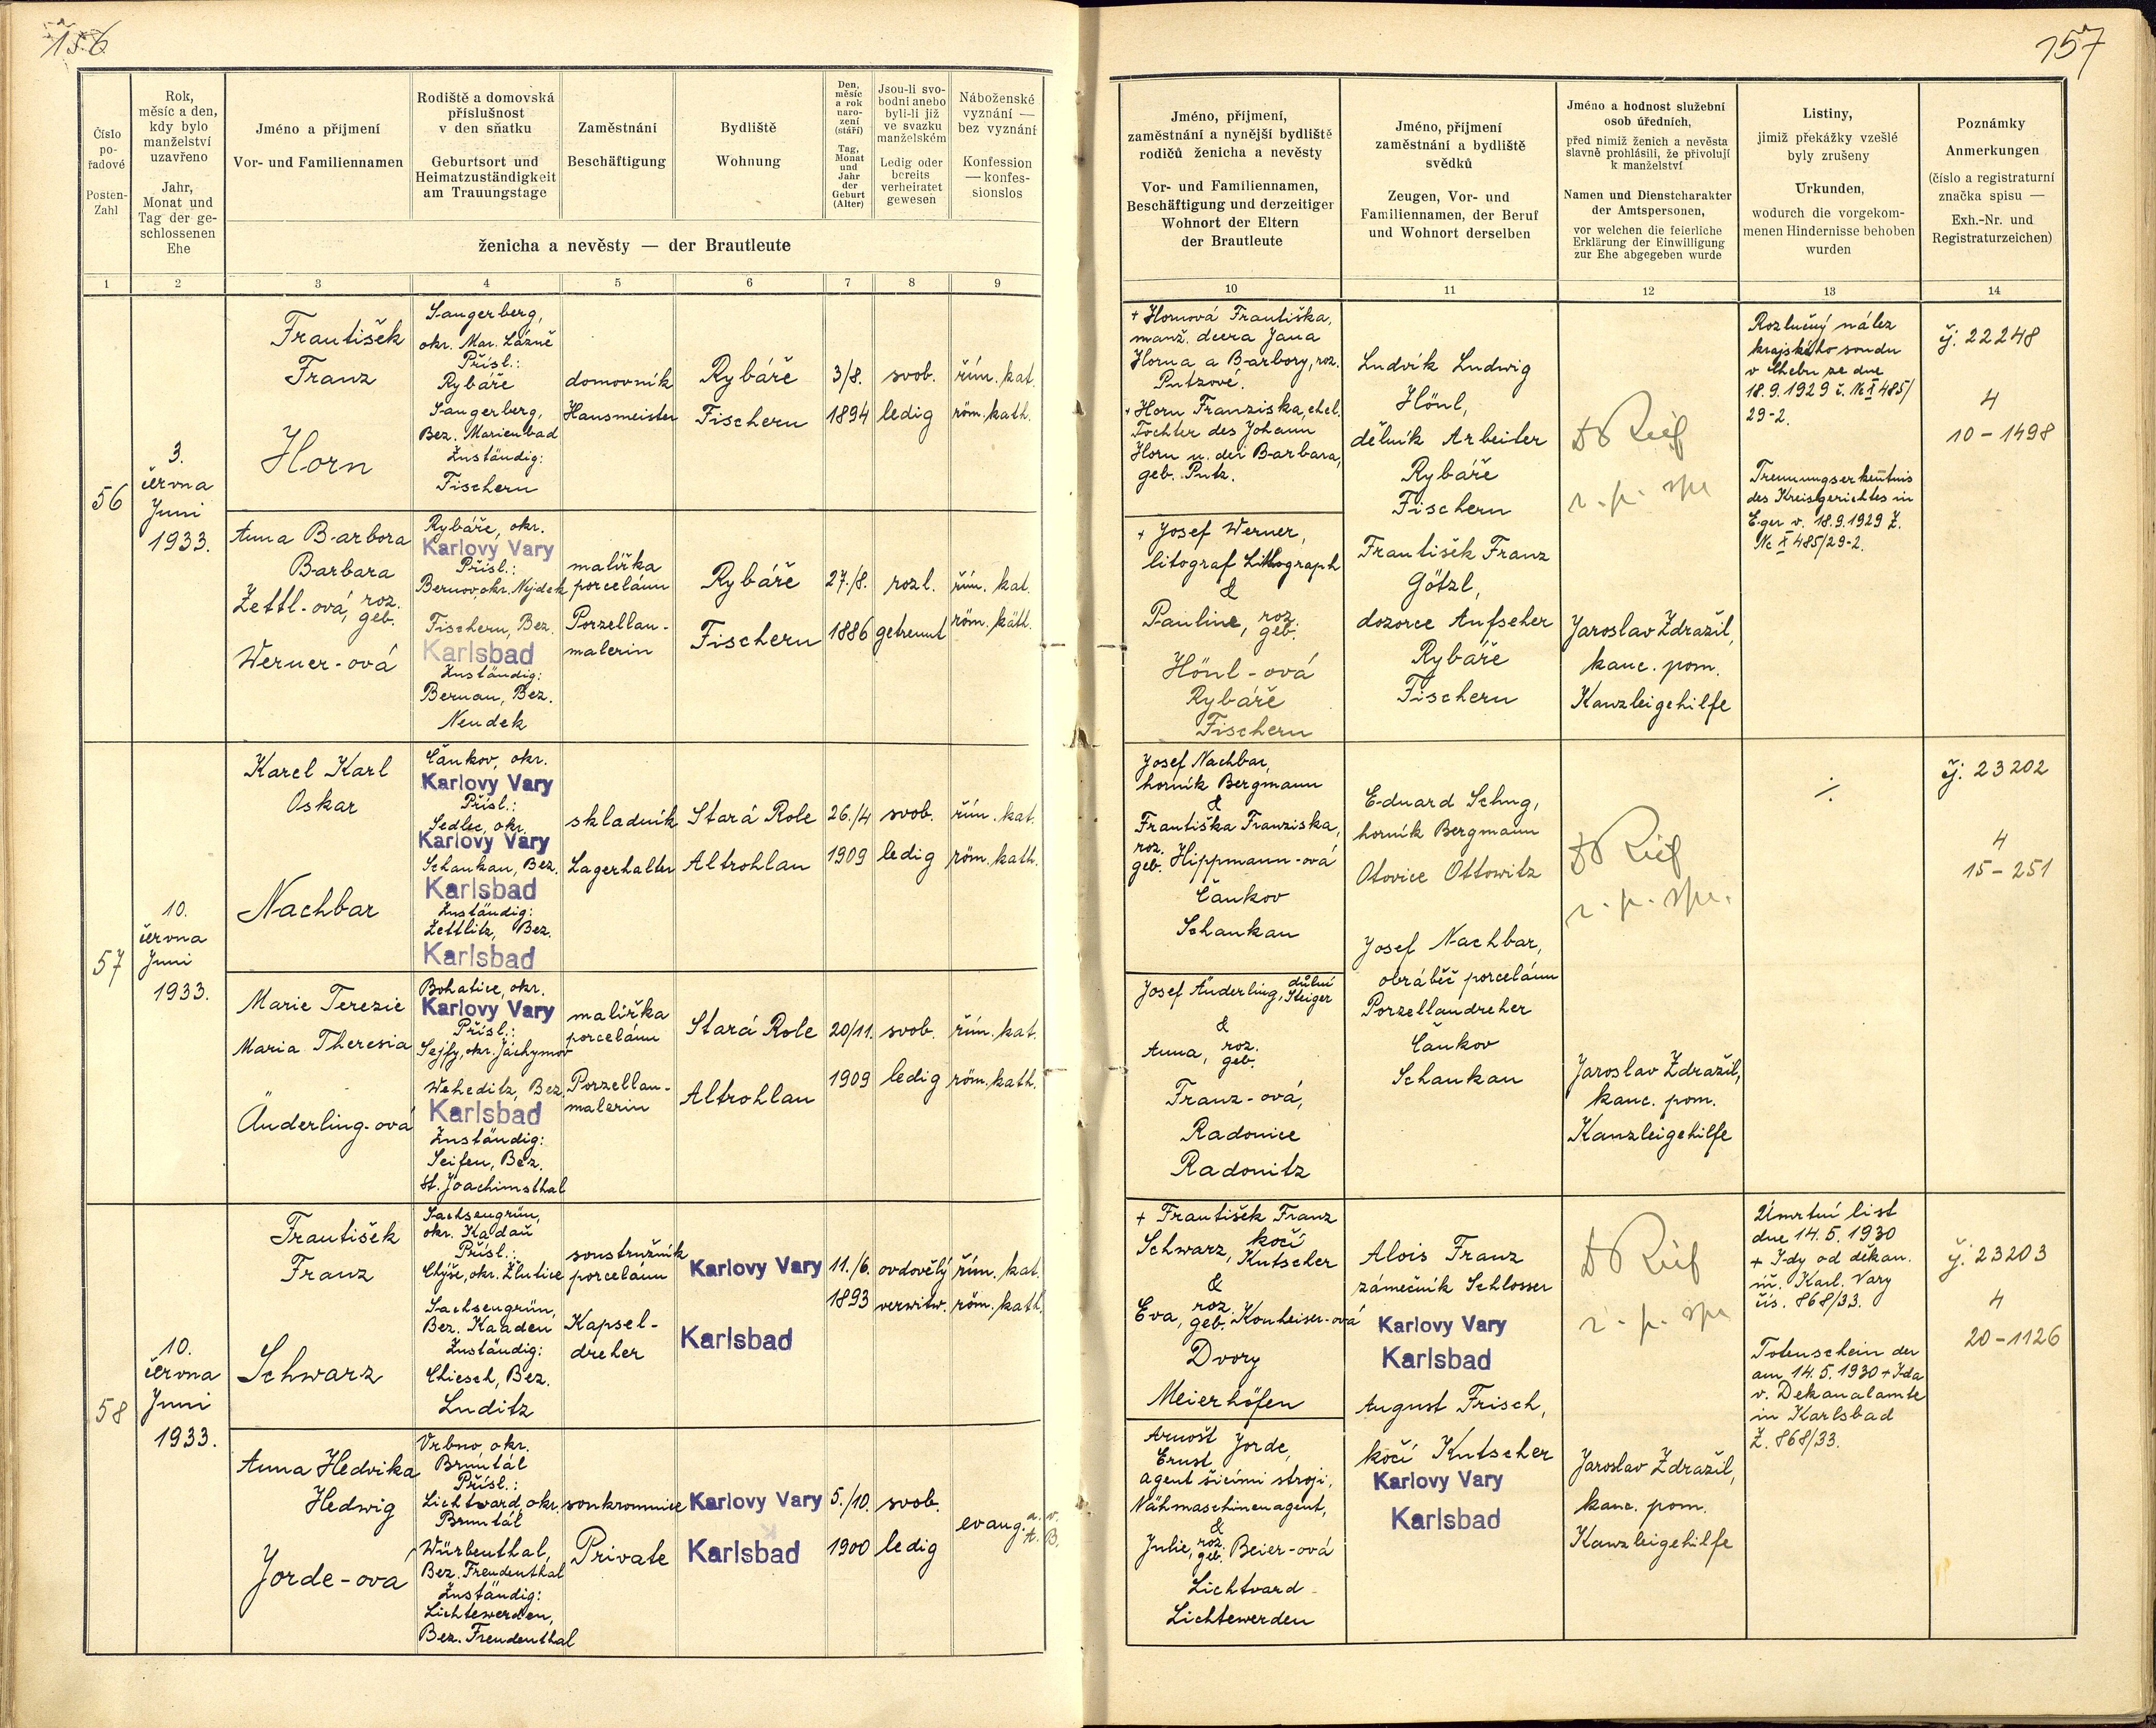 156
157
Číslo
po-
řadové
Posten-
Zahl
Rok,
měsíc a den,
kdy bylo
manželství
uzavřeno
Jahr,
Monat und
Tag der ge-
schlossenen
Ehe
Jméno a příjmení
Vor- und Familiennamen
Rodiště a domovská
příslušnost
v den sňatku
Geburtsort und
Heimatzuständigkeit
am Trauungstage
Zaměstnání
Beschäftigung
Bydliště
Wohnung
Den,
měsíc
a rok
naro-
zení
(stáří)
Tag,
Monat
und
Jahr
der
Geburt
(Alter)
Jsou-li svo-
bodni anebo
byli-li již
ve svazku
manželském
Ledig oder
bereits
verheiratet
gewesen
Náboženské
vyznání —
bez vyznání
Konfession
— konfes-
sionslos
ženicha a nevěsty — der Brautleute
Jméno, příjmení,
zaměstnání a nynější bydliště
rodičů ženicha a nevěsty
Vor- und Familiennamen,
Beschäftigung und derzeitiger
Wohnort der Eltern
der Brautleute
Jméno, příjmení
zaměstnání a bydliště
svědků
Zeugen, Vor- und
Familiennamen, der Beruf
und Wohnort derselben
Jméno a hodnost služební
osob úředních,
před nimiž ženich a nevěsta
slavně prohlásili, že přivolují
k manželství
Namen und Dienstcharakter
der Amtspersonen,
vor welchen die feierliche
Erklärung der Einwilligung
zur Ehe abgegeben wurde
Listiny,
jimiž překážky vzešlé
byly zrušeny
Urkunden,
wodurch die vorgekom-
menen Hindernisse behoben
wurden
Poznámky
Anmerkungen
(číslo a registraturní
značka spisu —
Exh.-Nr. und
Registraturzeichen)
1 2 3 4 5 6 7 8 9 10 11 12 13 14
56
3.
června
Juni
1933.
František
Franz
Horn
Sangerberg,
okr. Mar. Lázně
Přísl.:
Rybáře
Sangerberg,
Bez. Marienbad
Zuständig:
Fischern
domovník
Hausmeister
Rybáře
Fischern
3/8.
1894
svob.
ledig
řím. kat.
röm. kath.
Anna Barbora
Barbara
Zettl-ová, roz.
geb.
Werner-ová
Rybáře, okr.
Karlovy Vary
Přísl.:
Bernov okr. Nejdek
Fischern, Bez.
Karlsbad
Zuständig:
Bernau, Bez.
Neudek
malířka
porcelánu
Porzellan-
malerin
Rybáře
Fischern
27./8.
1886
rozl.
getrennt
řím. kat.
röm. kath.
+ Hornová Františka,
manž. dcera Jana
Horna a Barbory, roz.
Putzové.
+ Horn Franziska, ehel.
Tochter des Johann
Horn u. der Barbara,
geb. Putz.
+ Josef Werner,
litograf Lithograph
&
Pauline, roz.
geb.
Hönl-ová
Rybáře
Fischern
Ludvík Ludwig
Hönl,
dělník Arbeiter
Rybáře
Fischern
František Franz
Götzl,
dozorce Aufseher
Rybáře
Fischern
Jaroslav Zdražil,
kanc. pom.
Kanzleigehilfe
Rozlučný nález
krajského soudu
v Chebu ze dne
18.9.1929 č. Nc I 485/
29-2.
Trennungserkenntnis
des Kreisgerichtes in
Eger v. 18.9.1929 Z.
Nc I 485/29-2.
čj. 22248
4
10-1498
57
10.
června
Juni
1933.
Karel Karl
Oskar
Nachbar
Čankov, okr.
Karlovy Vary
Přísl.:
Sedlec, okr.
Karlovy Vary
Schankau, Bez.
Karlsbad
Zuständig:
Zettlitz, Bez.
Karlsbad
skladník
Lagerhalter
Stará Role
Altrohlau
26./4
1909
svob.
ledig
řím. kat.
röm. kath.
Marie Terezie
Maria Theresia
Änderling-ová
Bohatice, okr.
Karlovy Vary
Přísl.:
Sejfy, okr. Jáchymov
Weheditz, Bez.
Karlsbad
Zuständig:
Seifen, Bez.
St. Joachimsthal
malířka
porcelánu
Porzellan-
malerin
Stará Role
Altrohlau
20/11.
1909
svob.
ledig
řím. kat.
röm. kath.
Josef Nachbar,
horník Bergmann
&
Františka Franziska,
roz.
geb. Hippmann-ová
Čankov
Schankau
Josef Änderling, důlní
Steiger
&
Anna, roz.
geb.
Franz-ová,
Radonice
Radonitz
Eduard Schug,
horník Bergmann
Otovice Ottowitz
Josef Nachbar,
obráběč porcelánu
Porzellandreher
Čankov
Schankau
Jaroslav Zdražil,
kanc. pom.
Kanzleigehilfe
÷
čj. 23202
4
15-251
58
10.
června
Juni
1933.
František
Franz
Schwarz
Sachsengrün,
okr. Kadaň
Přísl.:
Chýše, okr. Žlutice
Sachsengrün,
Bez. Kaaden
Zuständig:
Chiesch, Bez.
Luditz
soustružník
porcelánu
Kapsel-
dreher
Karlovy Vary
Karlsbad
11./6.
1893
ovdovělý
verwitw.
řím. kat.
röm. kath.
Anna Hedvika
Hedwig
Jorde-ová
Vrbno, okr.
Bruntál
Přísl.:
Lichtvard, okr.
Bruntál
Würbenthal,
Bez. Freudenthal
Zuständig:
Lichtewerden,
Bez. Freudenthal
soukromnice
Private
Karlovy Vary
Karlsbad
5./10.
1900
svob.
ledig
evang. a. v.
A. B.
+ František Franz
Schwarz, kočí
Kutscher
&
Eva, roz.
geb. Konheiser-ová
Dvory
Meierhöfen
Arnošt Jorde,
Ernst
agent šicími stroji,
Nähmaschinenagent,
&
Julie, roz.
geb. Beier-ová
Lichtvard
Lichtewerden
Alois Franz
zámečník Schlosser
Karlovy Vary
Karlsbad
August Frisch,
kočí Kutscher
Karlovy Vary
Karlsbad
Jaroslav Zdražil,
kanc. pom.
Kanzleigehilfe
Úmrtní list
dne 14.5.1930
+ Idy od děkan.
úř. Karl. Vary
čís. 868/33.
Totenschein der
am 14.5.1930 + Ida
v. Dekanalamte
in Karlsbad
Z. 868/33.
čj. 23203
4
20-1126